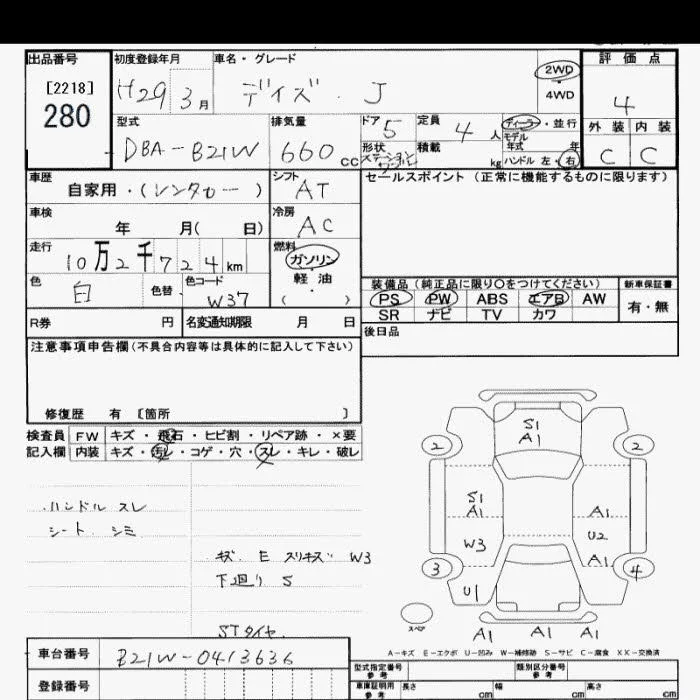 出品番号 初度登録年月 車名・グレード 2WD 評価点
[2218] H29 3月 デイズ. J ・4WD 4
280 外装 内装
型式 排気量 ドア 定員 ディーラー・並行 C C
DBA-B21W 660cc 5 4人 モデル年式 年
形状 積載 kg ハンドル 左・右
車歴 シフト セールスポイント(正常に機能するものに限ります)
自家用・(レンタカー) AT
車検 冷房
年 月( 日) AC
走行 燃料
10万2千724km ガソリン
色 色替 色コード 軽油
白 W37 ( )
装備品(純正品に限り○をつけてください) 新車保証書
PS PW ABS エアB AW 有・無
SR ナビ TV カワ
R券 円 名変通知期限 月 日
後日品
注意事項申告欄(不具合内容等は具体的に記入して下さい)
修復歴 有 [箇所 ]
検査員 FW キズ・飛石・ヒビ割・リペア跡・×要
記入欄 内装 キズ・汚レ・コゲ・穴・スレ・キレ・破レ
ハンドル スレ
シート シミ
キズ E スリキズ W3
下廻り S
STタイヤ.
S1
A1
2 2
S1
A1 A1
W3 U2
A1
3 4
U1
スペア
A1 A1 A1
A-キズ E-エクボ U-凹み W-補修跡 S-サビ C-腐食 XX-交換済
車台番号 B21W-0413636
型式指定番号 参考 類別区分番号 参考
登録番号
車庫証明用 参考 長さ cm 幅 cm 高さ cm